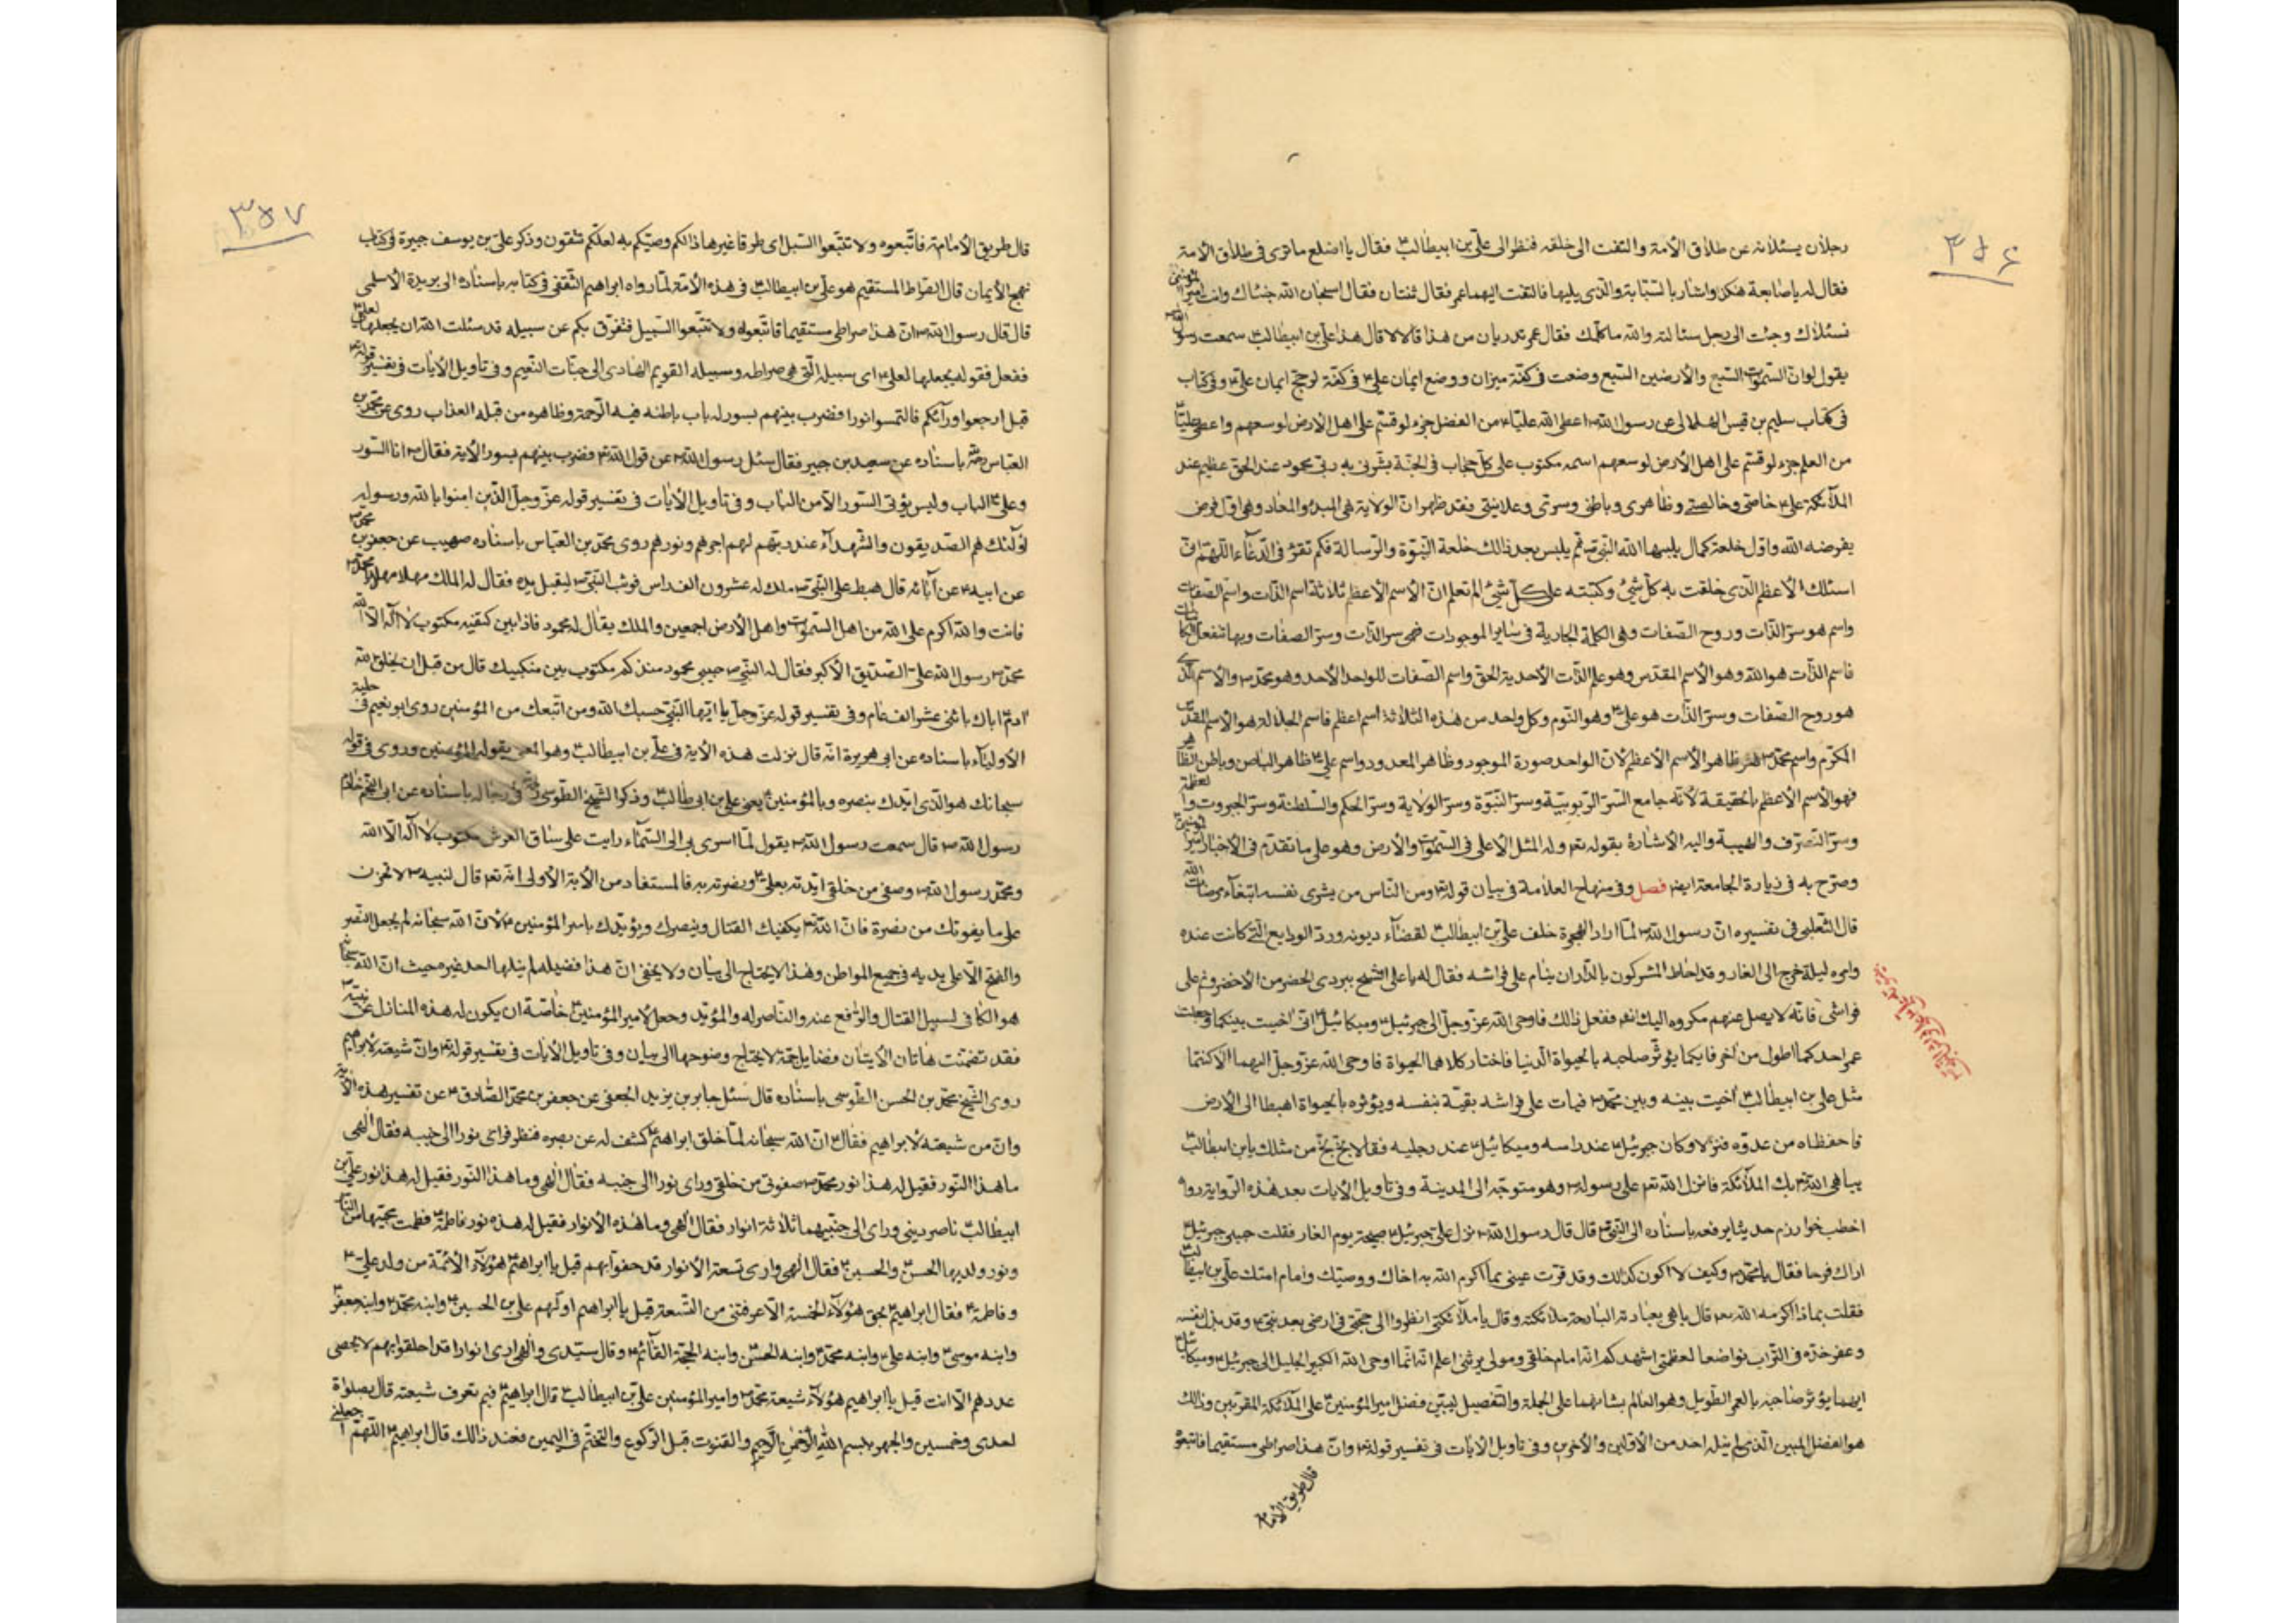 ٣٥٦
رجلان يسئلانه عن طلاق الأمة والتفت الى خلفه فنظر الى علي بن ابيطالب ع فقال يا اصلع ما ترى في طلاق الأمة
فقال له باصابعه هكذا واشار بالسبابة والذي يليها فالتفت اليهما عمر فقال ثنتان فقال سبحان الله جئناك وانت امير المؤمنين
نسئلك وجئت الى رجل سئالته والله ما كلمك فقال عمر تدريان من هذا قالا لا قال هذا علي بن ابيطالب ع سمعت رسول الله ص
يقول لو ان السموات السبع والأرضين السبع وضعت في كفة ميزان ووضع ايمان علي ع في كفة لرجح ايمان علي ع وفي كتاب
في كتاب سليم بن قيس الهلالي عن رسول الله ص اعطى الله عليا ع من الفضل جزء لو قسم على اهل الأرض لوسعهم واعطى عليا ع
من العلم جزء لو قسم على اهل الأرض لوسعهم اسمه مكتوب على كل حجاب في الجنة بشرني به ربي محمود عند الحق عظيم عند
الملائكة علي ع خاصتي وخالصتي وظاهري وباطني وسري وعلانيتي فقد ظهر ان الولاية هي المبدء والمعاد وهي اول فرض
يفرضه الله واول خلعة كمال يلبسها الله النبي ص ثم يلبس بعد ذالك خلعة النبوة والرسالة فكم تقرء في الدعاء اللهم اني
اسئلك الأعظم الذي خلقت به كل شئ وكتبته على كل شئ الم تعلم ان الأسم الأعظم ثلاثة اسم الذات واسم الصفات
واسم هو سر الذات وروح الصفات وهي الكلمة الجارية في ساير الموجودات فهي سر الذات وسر الصفات وبها تنفعل الكائنات
فاسم الذات هو الله وهو الأسم المقدس وهو علم الذات الأحدية الحق واسم الصفات للواحد الأحد وهو محمد ص والأسم الذي
هو روح الصفات وسر الذات هو علي ع وهو النوم وكل واحد من هذه الثلاثة اسم اعظم فاسم الجلالة هو الأسم المقدس
المكرم واسم محمد ص هو ظاهر الأسم الأعظم لأن الواحد صورة الموجود وظاهر المعدود واسم علي ع ظاهر الباطن وباطن الظاهر
فهو الأسم الأعظم بالحقيقة لأنه جامع السر الربوبية وسر النبوة وسر الولاية وسر الحكم والسلطنة وسر الجبروت والعظمة
وسر التصرف والهيبة واليه الأشارة بقوله تعم وله المثل الأعلى في السموات والأرض وهو على ما تقدم في الأخبار امير المؤمنين ع
وصرح به في زيارة الجامعة ايضا فصل وفي منهاج العلامة في بيان قوله تع ومن الناس من يشرى نفسه ابتغاء مرضات الله
قال الثعلبي في تفسيره ان رسول الله ص لما اراد الهجرة خلف علي بن ابيطالب ع لقضاء ديونه ورد الودايع التي كانت عنده
وامره ليلة خرج الى الغار وقد احاط المشركون بالدار ان ينام على فراشه فقال له يا علي اتشح ببردى الحضرمي الأخضر ونم على
فراشي فانه لا يصل منهم مكروه اليك انشم ففعل ذالك فاوحى الله عز وجل الى جبرئيل ع وميكائيل ع اني اخيت بينكما وجعلت
عمر احدكما اطول من اخر فايكما يؤثر صاحبه بالحيواة الدنيا فاختار كلاهما الحيواة فاوحى الله عز وجل اليهما الا كنتما
مثل علي بن ابيطالب ع اخيت بينه وبين محمد ص فبات على فراشه بقية بنفسه ويؤثره بالحيواة اهبطا الى الأرض
فاحفظاه من عدوه فنزلا وكان جبرئيل ع عند راسه وميكائيل ع عند رجليه فقالا بخ بخ من مثلك يابن ابيطالب ع
يباهي الله تع بك الملائكة فانزل الله تعم على رسوله ص وهو متوجه الى المدينة وفي تاويل الأيات بعد هذه الرواية رواه
اخطب خوارزم حديثا يرفعه باسناده الى النبي ص قال قال رسول الله ص نزل علي جبرئيل ع صبيحة يوم الغار فقلت حبيبي جبرئيل ع
اراك فرحا فقال يا محمد ص وكيف لا اكون كذلك وقد قرت عيني بما اكرم الله به اخاك ووصيك وامام امتك علي بن ابيطالب ع
فقلت بماذا اكرمه الله تعم قال باهى بعبادته البارحة ملائكته وقال يا ملائكتي انظروا الى حجتي في ارضي بعد نبيي ص وقد بذل نفسه
وعفر خده في التراب تواضعا لعظمتي اشهدكم انه امام خلقي ومولى بريتي اعلم انه انما اوحى الله الكبير الجليل الى جبرئيل ع وميكائيل ع
ايهما يؤثر صاحبه بالعمر الطويل وهو العالم بشانهما على الجملة والتفصيل ليبين فضل امير المؤمنين ع على الملائكة المقربين وذالك
هو الفضل المبين الذي لم ينله احد من الأولين والأخرين وفي تاويل الأيات في تفسير قوله تع وان هذا صراطي مستقيما فاتبعوه
قال طريق الأمامة
٣٥٧
قال طريق الأمامة فاتبعوه ولا تتبعوا السبل اى طرقا غيرها ذالكم وصيكم به لعلكم تتقون وذكر علي بن يوسف جبيرة في كتاب
نهج الأيمان قال الصراط المستقيم هو علي بن ابيطالب ع في هذه الأمة لما رواه ابراهيم الثقفي في كتابه باسناده الى بريدة الأسلمي
قال قال رسول الله ص ان هذا صراطي مستقيما فاتبعوه ولا تتبعوا السبيل فتفرق بكم عن سبيله قد سئلت الله ان يجعلها لعلي ع
ففعل فقوله يجعلها لعلي ع اى سبيله التي هي صراطه وسبيله القويم الهادى الى جنات النعيم وفي تاويل الأيات في تفسير قوله تع
قيل ارجعوا ورائكم فالتمسوا نورا فضرب بينهم بسور له باب باطنه فيه الرحمة وظاهره من قبله العذاب روى عن محمد بن
العباس ره باسناده عن سعيد بن جبير فقال سئل رسول الله ص عن قول الله تع فضرب بينهم بسور الأية فقال ص انا السور
وعلي ع الباب وليس يؤتى السور الا من الباب وفي تاويل الأيات في تفسير قوله عز وجل الذين امنوا بالله ورسوله
اولئك هم الصديقون والشهداء عند ربهم لهم اجرهم ونورهم روى محمد بن العباس باسناده صهيب عن جعفر بن محمد ع
عن ابيه ع عن آبائه قال هبط على النبي ص ملك له عشرون الف راس فوثب النبي ص ليقبل يده فقال له الملك مهلا مهلا يا محمد ص
فانت والله اكرم على الله من اهل السموات واهل الأرض اجمعين والملك يقال له محمود فاذا بين كتفيه مكتوب لا اله الا الله
محمد ص رسول الله علي ع الصديق الأكبر فقال له النبي ص حبيبي محمود منذ كم مكتوب بين منكبيك قال من قبل ان يخلق الله
ادم ع اباك باثني عشر الف عام وفي تفسير قوله عز وجل يا ايها النبي حسبك الله ومن اتبعك من المؤمنين روى ابو نعيم في حلية
الأولياء باسناده عن ابي هريرة انه قال نزلت هذه الأية في علي بن ابيطالب ع وهو المعنى بقوله المؤمنين وروى في قوله
سبحانك هو الذى ايدك بنصره وبالمؤمنين يعني علي بن ابي طالب ع وذكر الشيخ الطوسي ره في رجاله باسناده عن ابي النجم خادم
رسول الله ص قال سمعت رسول الله ص يقول لما اسرى بي الى السماء رايت على ساق العرش مكتوب لا اله الا الله
ومحمد رسول الله ص وصفي من خلقي ايدته بعلي ع ونصرته به فالمستفاد من الأية الأولى انه تعم قال لنبيه ص لا تحزن
على ما يفوتك من نصرة فان الله تع يكفيك القتال وينصرك ويؤيدك بامير المؤمنين ع لأن الله سبحانه لم يجعل النصر
والفتح الا على يديه في جميع المواطن وهذا لا يحتاج الى بيان ولا يخفى ان هذا فضيلة لم ينلها احد غيره حيث ان الله سبحانه
هو الكافي لسبيل القتال والرافع عنه والناصر له والمؤيد وجعل لأمير المؤمنين ع خاصة ان يكون له هذه المنازل عن نبيه ص
فقد تضمنت هاتان الأيتان فضايل جمة لا يحتاج وضوحها الى بيان وفي تاويل الأيات في تفسير قوله تع وان شيعته لأبراهيم
روى الشيخ محمد بن الحسن الطوسي باسناده قال سئل جابر بن يزيد الجعفي عن جعفر بن محمد الصادق ع عن تفسير هذه الأية
وان من شيعته لأبراهيم فقال ع ان الله سبحانه لما خلق ابراهيم ع كشف له عن بصره فنظر فراى نورا الى جنبه فقال الهي
ما هذا النور فقيل له هذا نور محمد ص صفوتي من خلقي وراى نورا الى جنبه فقال الهي وما هذا النور فقيل له هذا نور علي بن
ابيطالب ع ناصر ديني وراى الى جنبيهما ثلاثة انوار فقال الهي وما هذه الأنوار فقيل له هذه نور فاطمة ع فطمت محبيها من النار
ونور ولديها الحسن والحسين ع فقال الهي وارى تسعة الأنوار قد حفوا بهم قيل يا ابراهيم هؤلاء الأئمة من ولد علي ع
وفاطمة ع فقال ابراهيم ع بحق هؤلاء الخمسة الا عرفتني من التسعة قيل يا ابراهيم اولهم علي بن الحسين ع وابنه محمد ع وابنه جعفر ع
وابنه موسى ع وابنه علي ع وابنه محمد ع وابنه الحسن ع وابنه الحجة القائم ع وقال سيدى والهي ارى انوارا قد احلقوا بهم لا يحصى
عددهم الا انت قيل يا ابراهيم هؤلاء شيعة محمد ص وامير المؤمنين علي بن ابيطالب ع قال ابراهيم ع فبم تعرف شيعته قال بصلواة
احدى وخمسين والجهر ببسم الله الرحمن الرحيم والقنوت قبل الركوع والتختم في اليمين فعند ذالك قال ابراهيم ع اللهم اجعلني